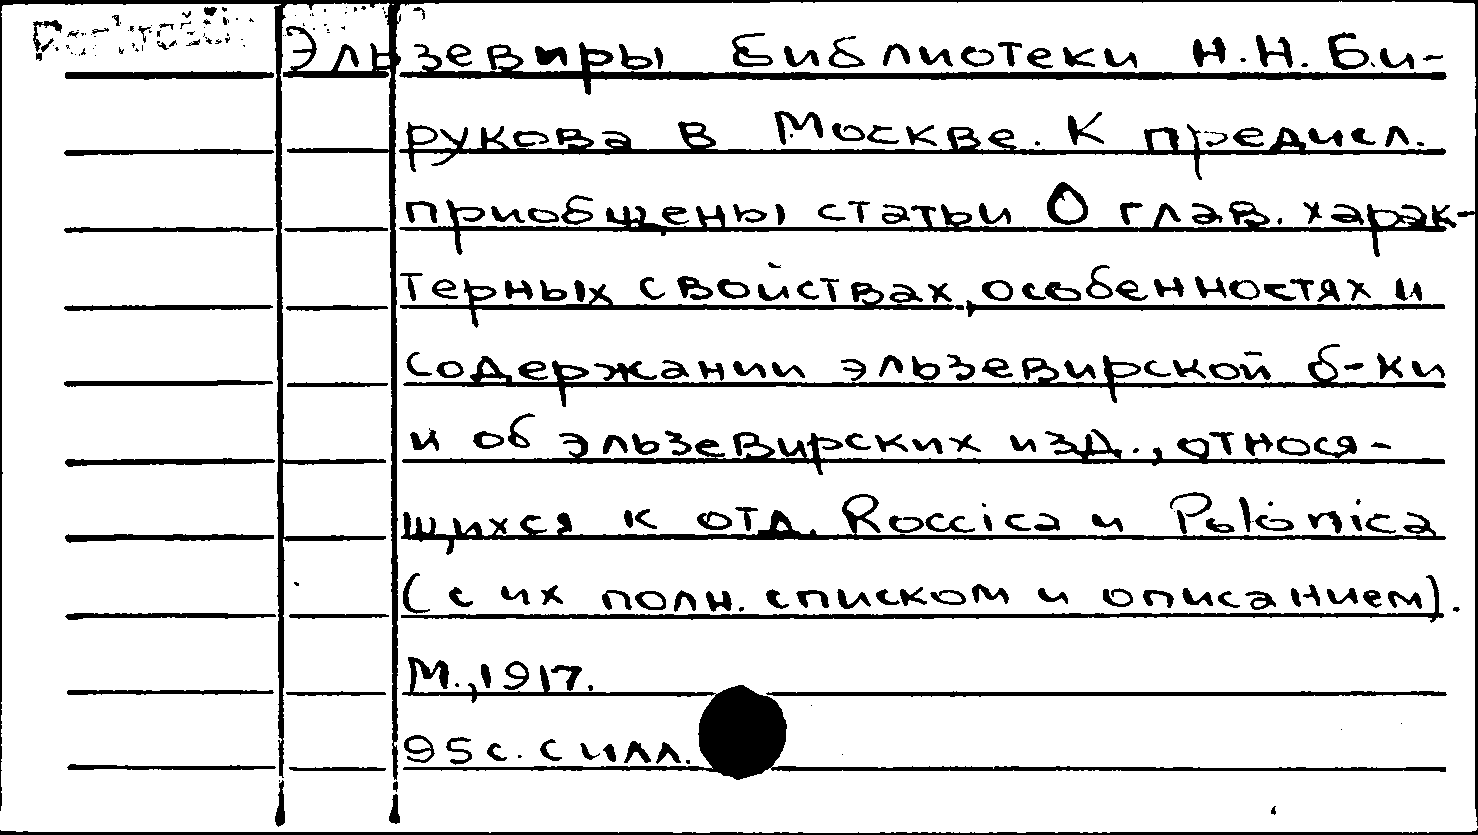 Эльзевиры библиотеки Н.Н. Би-
рукова в Москве. К предисл.
приобщены статьи О глав. харак-
терных свойствах, особенностях и
содержании эльзевирской б-ки
и об эльзевирских изд., относя-
щихся к отд. Roccica и Polonica
(с их полн. списком и описанием).
М., 1917.
95 с. с илл.